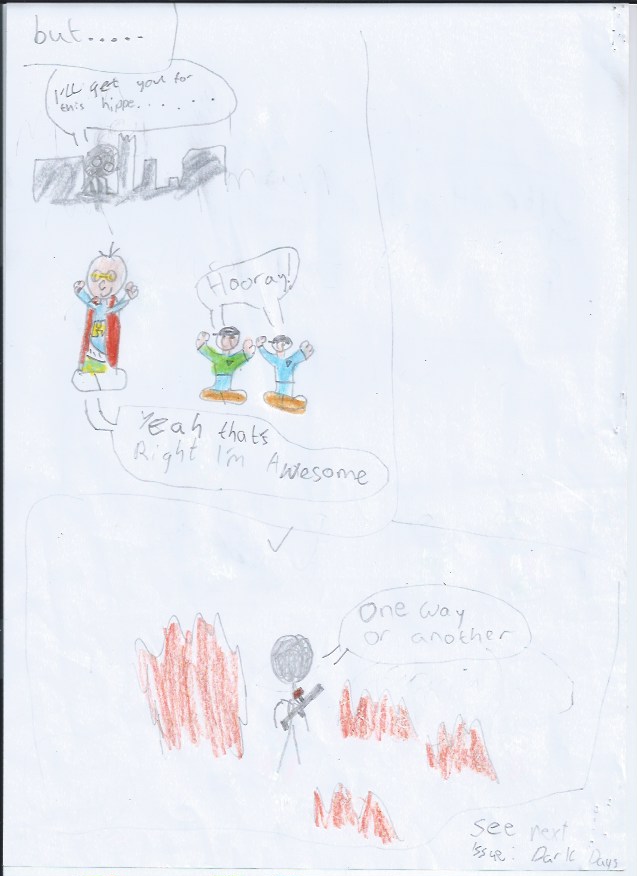 but.....
I'll get you for
this hippe......
Hooray!
Yeah that's
Right I'm Awesome
One way
or another
See next
issue: Dark Days